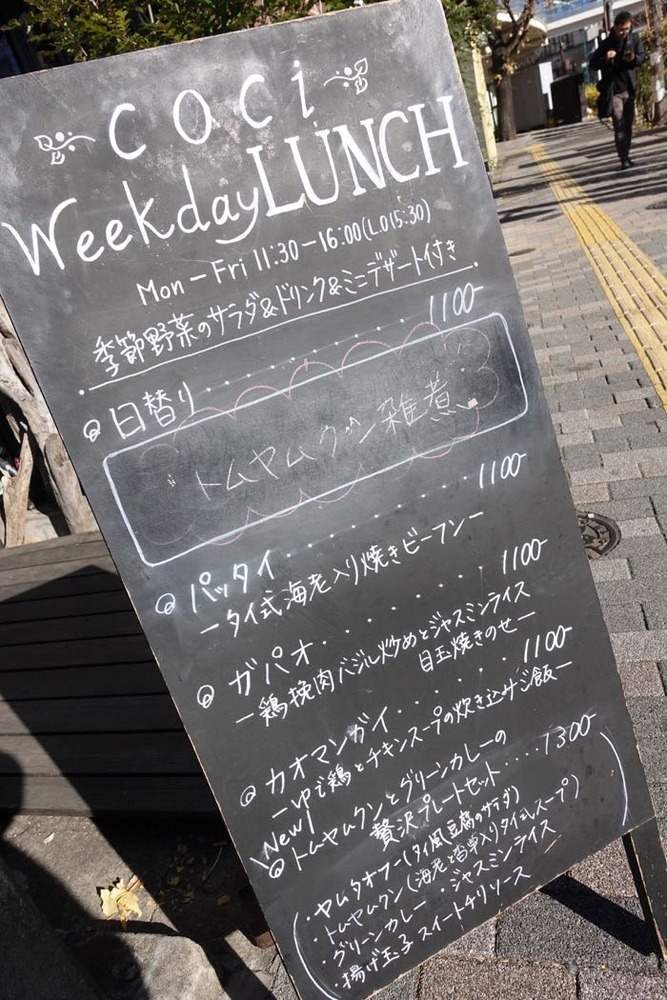 coci
Weekday LUNCH
Mon - Fri 11:30 - 16:00 (L.O 15:30)
季節野菜のサラダ&ドリンク&ミニデザート付き
◎ 日替り・・・・・・・・・・ 1100-
トムヤムクン雑煮
◎ パッタイ・・・・・・・・・・ 1100-
ータイ式海老入り焼きビーフンー
◎ ガパオ・・・・・・・・ 1100-
ー鶏挽肉バジル炒めとジャスミンライス
目玉焼きのせー
◎ カオマンガイ・・・・・・ 1100-
ーゆで鶏とチキンスープの炊き込みご飯ー
New!
◎ トムヤムクンとグリーンカレーの
贅沢プレートセット・・・・・ 1300-
・ヤムタオフー(タイ風豆腐のサラダ)
・トムヤムクン(海老と香草入りタイ式スープ)
・グリーンカレー ・ジャスミンライス
・揚げ玉子 スイートチリソース